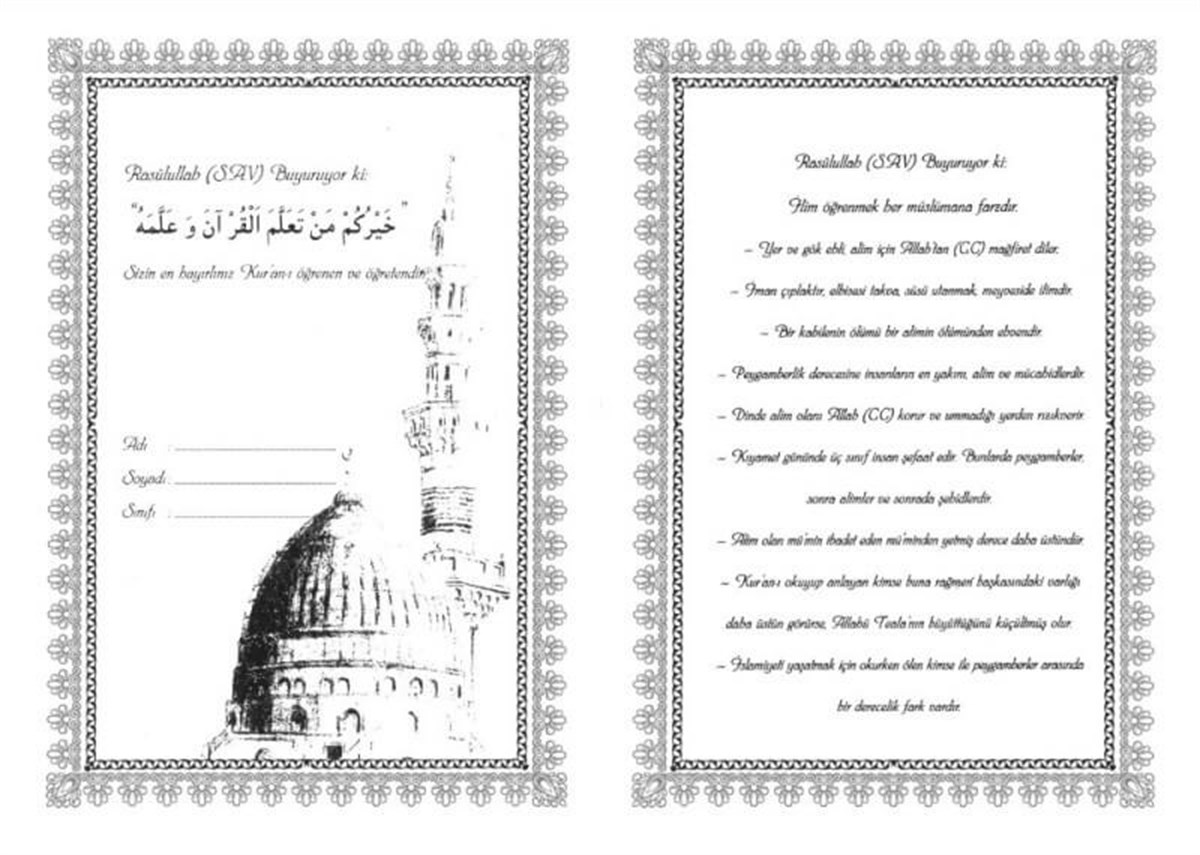 Rasûlullah (SAV) Buyuruyor ki:
"خَيْرُكُمْ مَنْ تَعَلَّمَ اَلْقُرْآنَ وَ عَلَّمَهُ"
Sizin en hayırlınız Kur'an-ı öğrenen ve öğretendir.
Adı :
Soyadı :
Sınıfı :
Rasûlullah (SAV) Buyuruyor ki:
İlim öğrenmek her müslümana farzdır.
– Yer ve gök ehli, alim için Allah'tan (CC) mağfiret diler.
– İman çıplaktır, elbisesi takva, süsü utanmak, meyveside ilimdir.
– Bir kabilenin ölümü bir alimin ölümünden ehvendir.
– Peygamberlik derecesine insanların en yakını, alim ve mücahidlerdir.
– Dinde alim olanı Allah (CC) korur ve ummadığı yerden rızıkverir.
– Kıyamet gününde üç sınıf insan şefaat edir. Bunlarda peygamberler,
sonra alimler ve sonrada şehidlerdir.
– Alim olan mü'min ibadet eden mü'minden yetmiş derece daha üstündür.
– Kur'an-ı okuyup anlayan kimse buna rağmen başkasındaki varlığı
daha üstün görürse, Allahü Teala'nın büyüttüğünü küçültmüş olur.
– İslamiyeti yaşatmak için okurken ölen kimse ile peygamberler arasında
bir derecelik fark vardır.